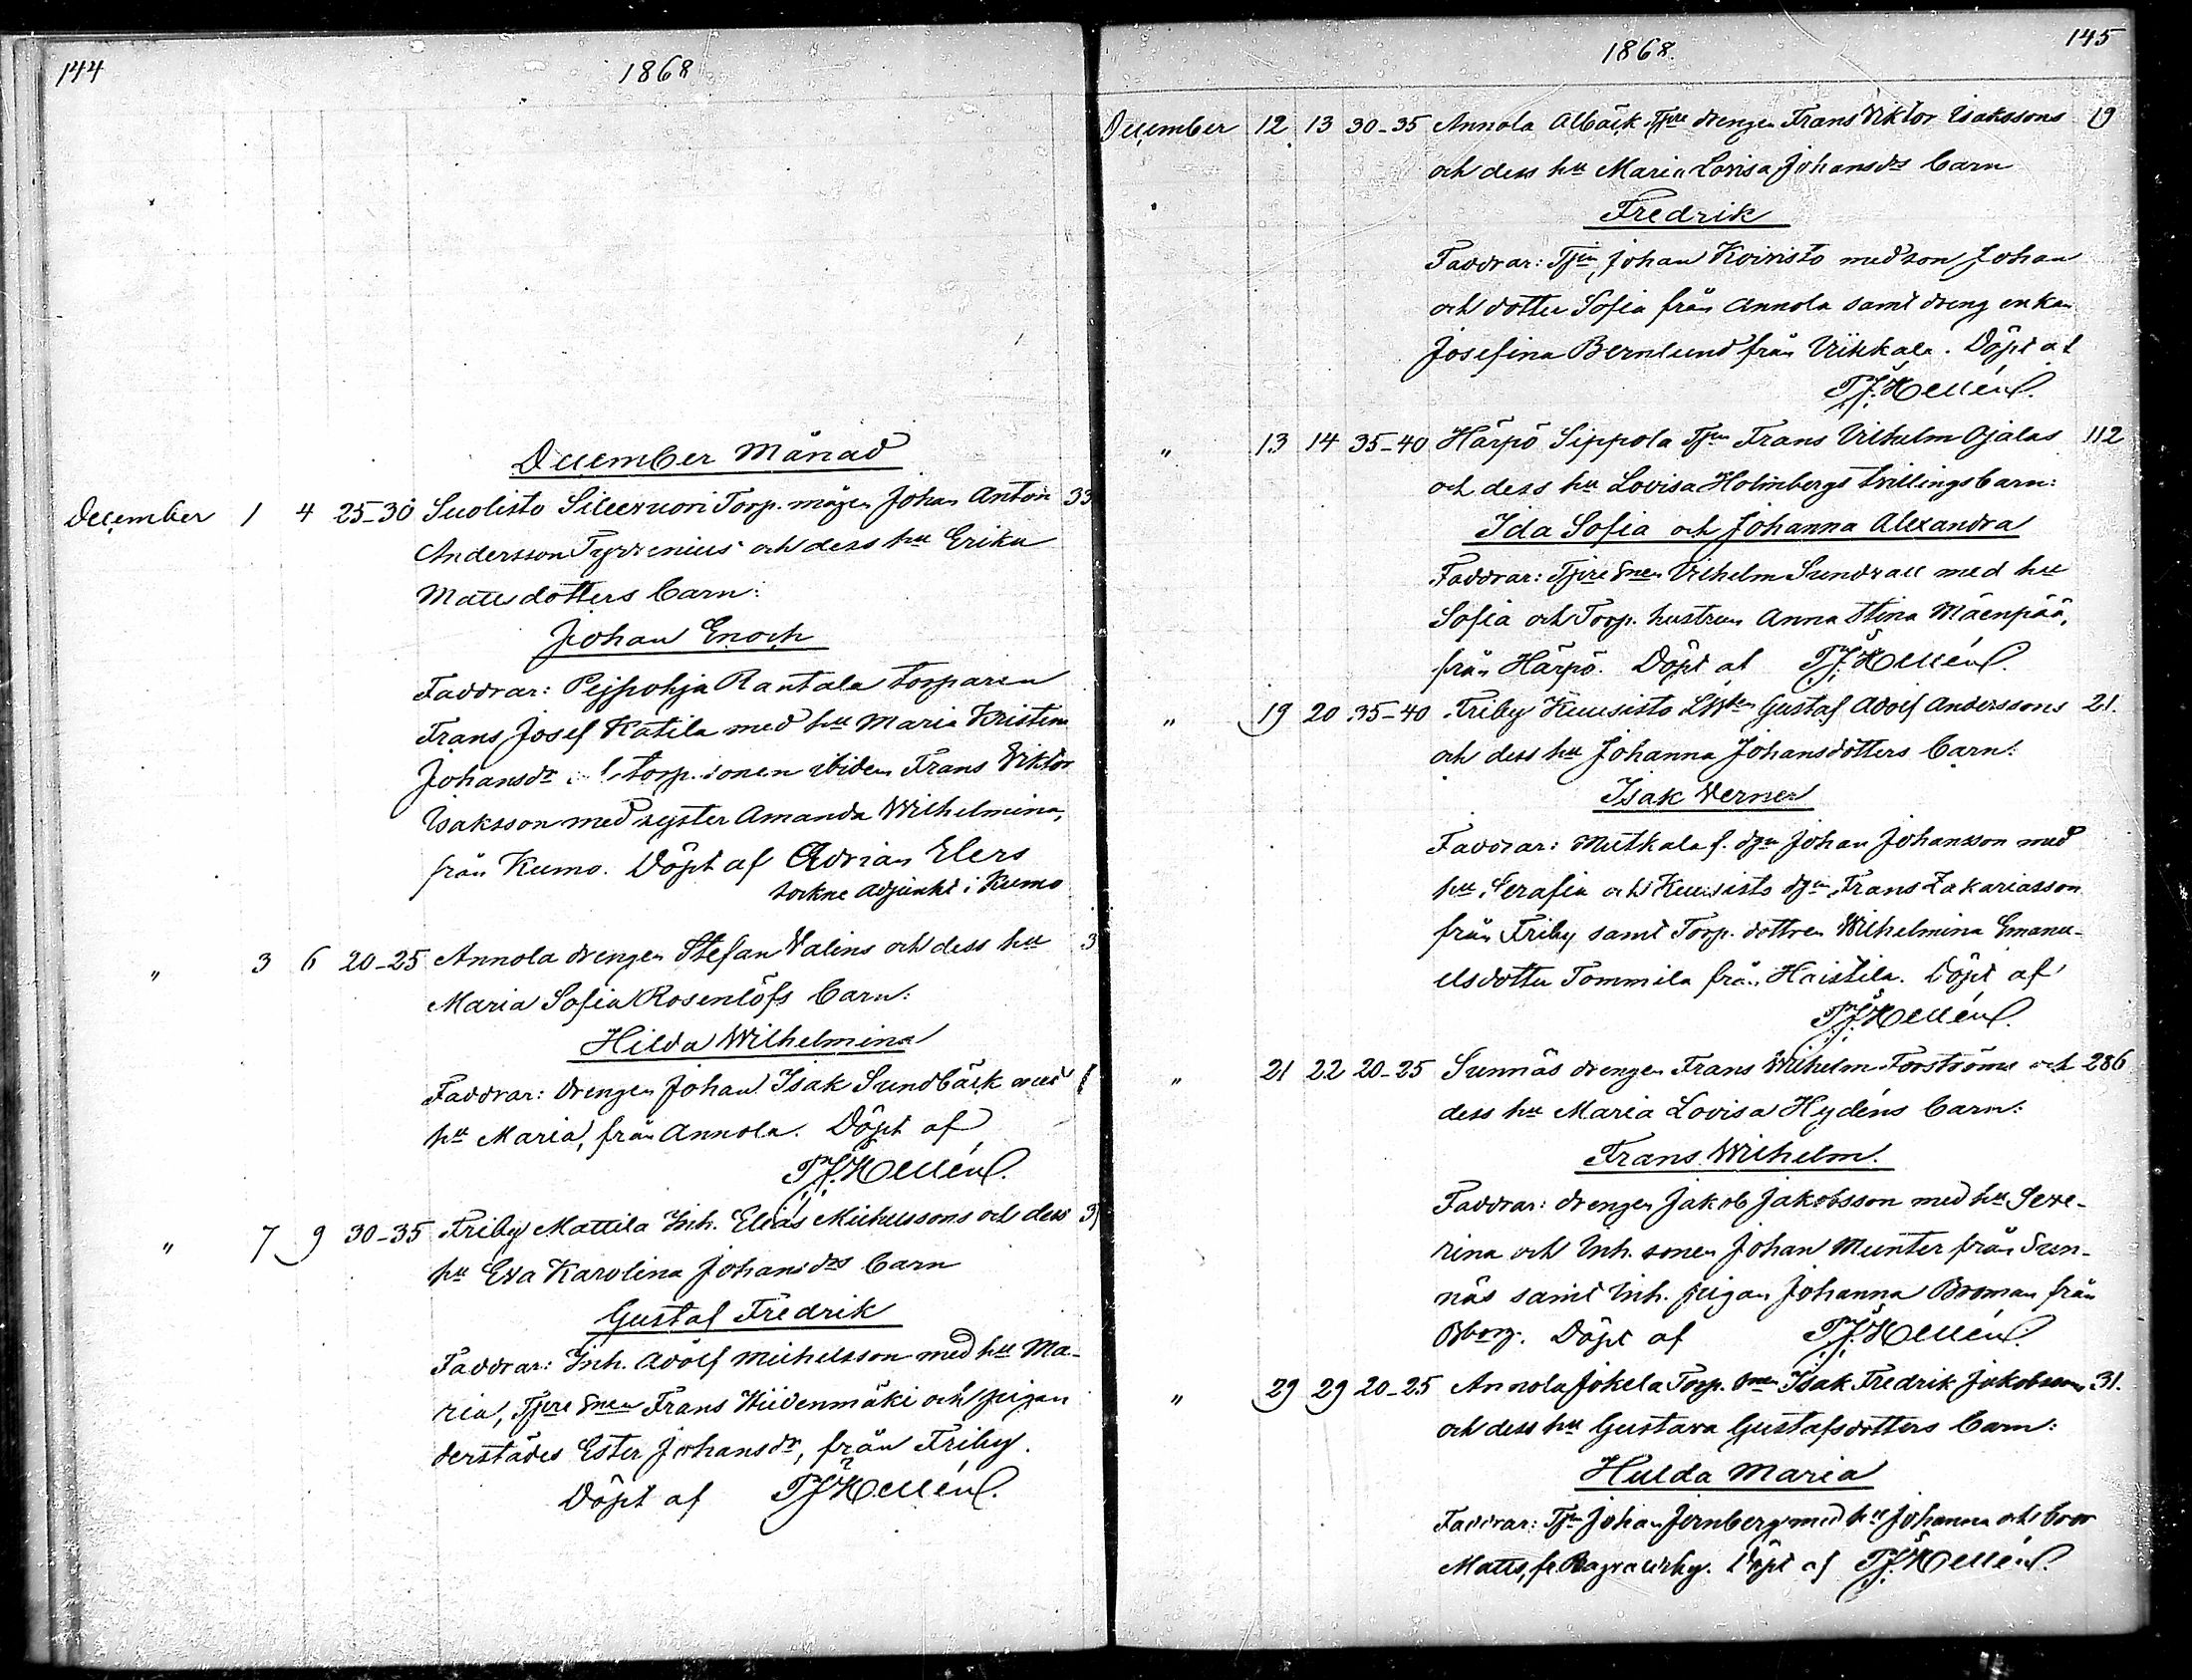 144
1868
December Månad
December 1 4 25-30 Suolisto Torp. mågen Johan Anton 33
Andersson Tyrvenius och dess hu Erika
Mattsdotters barn:
Johan Enoch
Faddrar: Pejpohja Rantala torparen
Frans Josef Katila med hu Maria Kristina
Johansdr torp. sonen ibidem Frans Viktor
Isaksson med syster Amanda Wilhelmina,
från Kumo. Döpt af Adrian Elers
sockne adjunkt i Kumo
" 3 6 20-25 Annola drengen Stefan Valins och dess hu 3
Maria Sofia Rosenlöfs barn:
Hilda Wilhelmina
Faddrar: drengen Johan Isak Sundbäck med
hu Maria, från Annola. Döpt af
Hellén.
" 7 9 30-35 Friby Mattila Inh. Elias Michelssons och dess 3
hu Eva Karolina Johansdrs barn
Gustaf Fredrik
Faddrar: Inh. Adolf Michelsson med hu Ma-
ria, Frans Hiidenmäki och pigan
derstädes Ester Johansdr, från Friby.
Döpt af Hellén.
1868.
145
December 12 13 30-35 Annola Albäck drengen Frans Viktor Isakssons 19
och dess hu Maria Lovisa Johansdrs barn
Fredrik
Faddrar: Johan Koivisto med son Johan
och dotter Sofia från Annola samt dreng enkan
Josefina Bernlund från Viikkala. Döpt af
Hellén.
" 13 14 35-40 Härpö Sippola Frans Vilhelm Ojalas 112
och dess hu Lovisa Holmbergs tvillingsbarn:
Ida Sofia och Johanna Alexandra
Faddrar: Vilhelm Sundvall med hu
Sofia och Torp. hustrun Anna Stina Mäenpää,
från Härpö. Döpt af Hellén.
" 19 20 35-40 Friby Kuusisto Gustaf Adolf Anderssons 21.
och dess hu Johanna Johansdotters barn:
Isak Verner
Faddrar: Mutkala f. Johan Johansson med
hu Serafia och Kuusisto Frans Zakariasson
från Friby samt Torp. dottren Wilhelmina Emanu-
elsdotter Tommila från Haistila. Döpt af
Hellén.
" 21 22 20-25 Sunnäs drengen Frans Wilhelm Forströms och 286
dess hu Maria Lovisa Hydéns barn:
Frans Wilhelm.
Faddrar: drengen Jakob Jakobsson med hu Seve-
rina och Inh. sonen Johan Munter från Sun-
näs samt Inh. pigan Johanna Broman från
Bborg. Döpt af Hellén.
" 29 29 20-25 Annola Jokela Torp. Isak Fredrik Jakobssons 31.
och dess hu Gustava Gustafsdotters barn:
Hulda Maria
Faddrar: Johan Jernberg med hu Johanna och bror
Matts, fr. Döpt af Hellén.